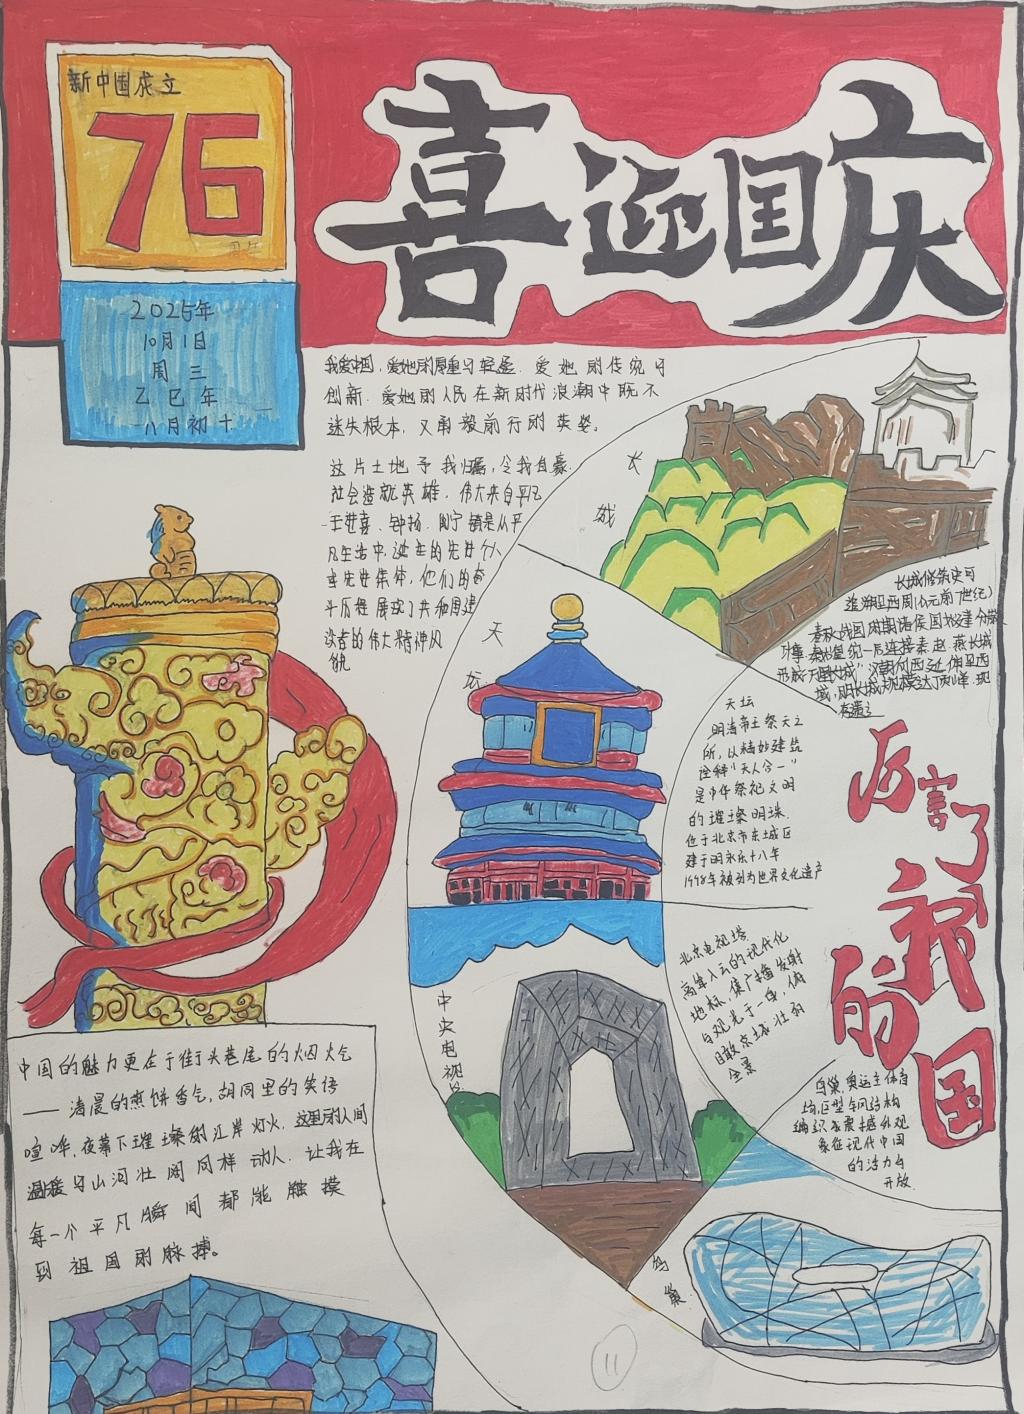 新中国成立
76
周年
喜迎国庆
2025年
10月1日
周三
乙巳年
八月初十
我爱中国，爱她的厚重与轻盈．爱她的传统与
创新．爱她的人民在新时代浪潮中既不
迷失根本，又勇毅前行的英姿。
这片土地予我归属，令我自豪．
社会造就英雄，伟大来自平凡
王进喜、钟扬．
凡生活中，走出的先进个人
先进集体，他们的奋
斗历程展现了共和国建
设者的伟大精神风
貌
长
城
长城修筑史可
追溯到西周（公元前7世纪）
春秋战国时期诸侯国
形成"万里长城"
城，明长城规模达顶峰．现
存遗之
天
坛
天坛
明清帝王祭天之
所，以精妙建筑
诠释"天人合一"
是中华祭祀文明
的璀璨明珠．
位于北京市东城区
建于明永乐十八年
1998年被列为世界文化遗产
厉害了
我的
国
中央电视台
北京电视塔
高耸入云的现代化
地标，集广播发射
与观光于一身，俯
瞰京城壮丽
全景
鸟巢，奥运主体育
场，巨型钢结构
编织震撼外观
象征现代中国
的活力与
开放．
中国的魅力更在于街头巷尾的烟火气
——清晨的煎饼香气，胡同里的笑语
喧哗．夜幕下璀璨的江岸灯火，这里的人间
温暖与山河壮阔同样动人．让我在
每一个平凡瞬间都能触摸
到祖国的脉搏。
鸟
巢
11